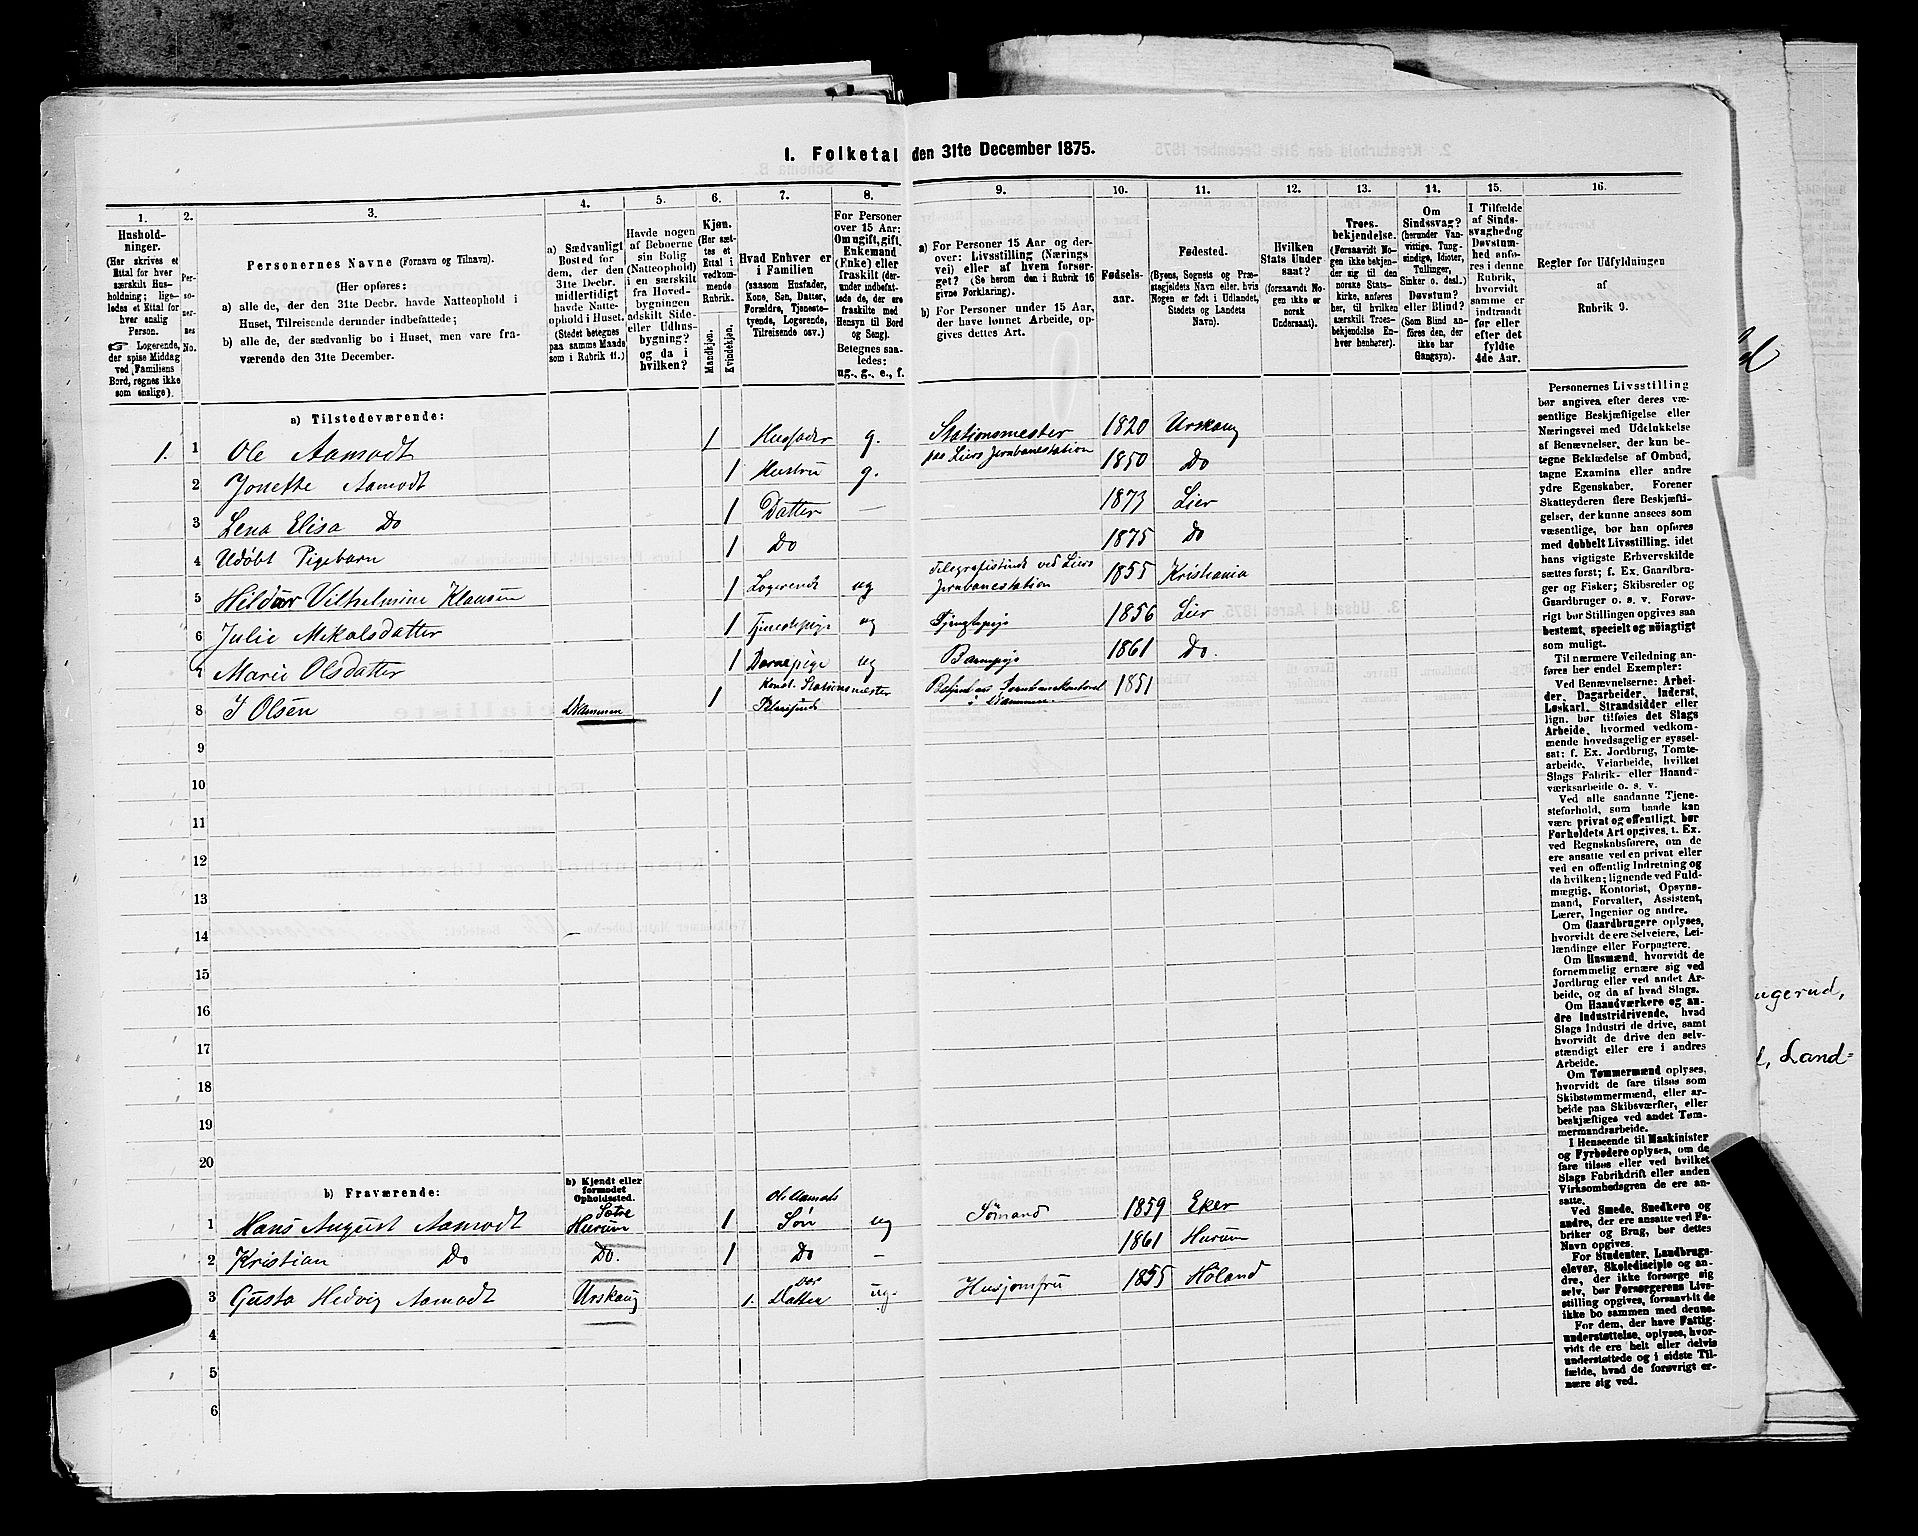 1. Folketal den 31te December 1875.
1. 2. 3. 4. 5. 6. 7. 8. 9. 10. 11. 12. 13. 14. 15. 16.
Hushold-
ninger.
(Her skrives et
Ettal for hver
særskilt Hus-
holdning; lige-
ledes et Ettal for
hver enslig
Person.
☞ Logerende,
der spise Middag
ved Familiens
Bord, regnes ikke
som enslige).
Per-
so-
ner-
nes
No.
Personernes Navne (Fornavn og Tilnavn).
(Her opføres:
a) alle de, der den 31te Decbr. havde Natteophold i
Huset, Tilreisende derunder indbefattede;
b) alle de, der sædvanlig bo i Huset, men vare fra-
værende den 31te December.
a) Sædvanligt
Bosted for
dem, der den
31te Decbr.
midlertidigt
havde Natte-
ophold i Huset.
(Stedet betegnes
paa samme Maade
som i Rubrik 11.)
Havde nogen
af Beboerne
sin Bolig
(Natteophold)
i en særskilt
fra Hoved-
bygningen
adskilt Side-
eller Udhus-
bygning?
og da i
hvilken?
Kjøn.
(Her sæt-
tes et
Ettal i
vedkom-
mende
Rubrik.
Mandkjøn.
Kvindekjøn.
Hvad Enhver er
i Familien
(saasom Husfader,
Kone, Søn, Datter,
Forældre, Tjeneste-
tyende, Logerende,
Tilreisende osv.)
For Personer
over 15 Aar:
Om ugift, gift,
Enkemand
(Enke) eller
fraskilt (der-
under indbefat-
tede de, der ere
fraskilte med
Hensyn til Bord
og Seng).
Betegnes saa-
ledes:
ug., g., e., f.
a) For Personer 15 Aar og der-
over: Livsstilling (Nærings
vei) eller af hvem forsør-
get? (Se herom den i Rubrik 16
givne Forklaring).
b) For Personer under 15 Aar,
der have lønnet Arbeide, op-
gives dettes Art.
Fødsels-
aar.
Fødested.
(Byens, Sognets og Præ-
stegjeldets Navn eller, hvis
Nogen er født i Udlandet,
Stedets og Landets
Navn).
Hvilken
Stats Under
saat?
(forsaavidt No-
gen ikke er
norsk
Undersaat).
Troes-
bekjendelse.
(Forsaavidt No-
gen ikke bekjen-
der sig til den
norske Stats-
kirke, anføres
her, til hvilken
særskilt Troes-
bekjendelse En-
hver henhører).
Om
Sindssvag?
(herunder Van-
vittige, Tung-
sindige, Idioter,
Tullinger,
Sinker o. desl.)
Døvstum?
eller Blind?
(Som Blind an-
føres den, der
ikke har
Gangsyn).
I Tilfælde
af Sinds-
svaghed og
Døvstum-
hed anfø-
res i denne
Rubrik,
hvorvidt
samme er
indtraadt
før eller
efter det
fyldte
4de Aar.
Regler for Udfyldningen
af
Rubrik 9.
a) Tilstedeværende:
1. 1 Ole Aamodt 1 Husfader g. Stationsmester 1820 Urskoug
paa Liers Jernbanestation
2 Jonette Aamodt 1 Hustru g. 1850 Do
3 Lena Elisa Do 1 Datter — 1873 Lier
4 Udøbt Pigebarn 1 Do 1875 Do
5 Hildur Vilhelmine Klausen 1 Logerende ug Telegrafistinde ved Liers Jernbanestation 1855 Kristiania
6 Julie Nikolsdatter 1 ug 1856 Lier
7 Marie Olsdatter 1 Barnepige ug Barnepige 1861 Do.
8 J Olsen Drammen 1 Konst. Stationsmester 1851
i Drammen.
9
10
11
12
13
14
15
16
17
18
19
20
b) Fraværende:
b) Kjendt eller
formodet
Opholdssted.
1 Hans August Aamodt Sætre Hurum 1 Ole Aamodts Søn ug Sømand 1859 Eker
2 Kristian Do Do. 1 Do – 1861 Hurum
3 Gusta Hedvig Aamodt Urskoug 1. Datter ug. Husjomfru 1855 Höland
4
5
6
Personernes Livsstilling
bør angives efter deres væ-
sentlige Beskjæftigelse eller
Næringsvei med Udelukkelse
af Benævnelser, der kun be-
tegne Beklædelse af Ombud,
tagne Examina eller andre
ydre Egenskaber. Forener
Skatteyderen flere Beskjæfti-
gelser, der kunne ansees som
væsentlige, bør han opføres
med dobbelt Livsstilling, idet
hans vigtigste Erhvervskilde
sættes først; f. Ex. Gaardbru-
ger og Fisker; Skibsreder og
Gaardbruger o. s. v. Forøv-
rigt bør Stillingen opgives saa
bestemt, specielt og nöiagtigt
som muligt.
Til nærmere Veiledning an-
føres her endel Exempler:
Ved Benævnelserne: Arbei-
der, Dagarbeider, Inderst,
Løskarl, Strandsidder eller
lign. bør tilføies det Slags
Arbeide, hvormed vedkom-
mende hovedsagelig er syssel-
sat; f. Ex. Jordbrug, Tomte-
arbeide, Veiarbeide, hvilket
Slags Fabrik- eller Haand-
værksarbeide o. s. v.
Ved alle saadanne Tjene-
steforhold, som baade kan
være privat og offentligt, bør
Forholdets Art opgives, t. Ex.
ved Regnskabsførere, om de
ere ansatte ved en privat eller
ved en offentlig Indretning og
da hvilken; lignende ved Fuld-
mægtig, Kontorist, Opsyns-
mand, Forvalter, Assistent,
Lærer, Ingeniør og andre.
Om Gaardbrugere oplyses,
hvorvidt de ere Selveiere, Lei-
lændinge eller Forpagtere.
Om Husmænd, hvorvidt de
fornemmelig ernære sig ved
Jordbrug eller ved andet Ar-
beide, og da af hvad Slags.
Om Haandværkere og an-
dre Industridrivende, hvad
Slags Industri de drive, samt
hvorvidt de drive den selv-
stændigt eller ere i andres
Arbeide.
Om Tømmermænd oplyses,
hvorvidt de fare tilsøs som
Skibstømmermænd, eller ar-
beide paa Skibsværfter, eller
beskjæftiges ved andet Tøm-
mermandsarbeide.
I Henseende til Maskinister
og Fyrbødere oplyses, om de
fare tilsøs eller ved hvilket
Slags Fabrikdrift eller anden
Virksombedsgren de ere an-
satte.
Ved Smede, Snedkere og
andre, der ere ansatte ved Fa-
briker og Brug, bør dettes
Navn opgives.
For Studenter, Landbrugs-
elever, Skoledisciple og an-
dre, der ikke forsørge sig
selv, bør Forsørgerens Livs-
stilling opgives, forsaavidt de
ikke bo sammen med denne.
For dem, der have Fattig-
understøttelse, oplyses, hvor-
vidt de ere helt eller delvis
understøttede og i sidste Til-
fælde, hvad de forøvrigt er-
nære sig ved.
ugerud,
Land=